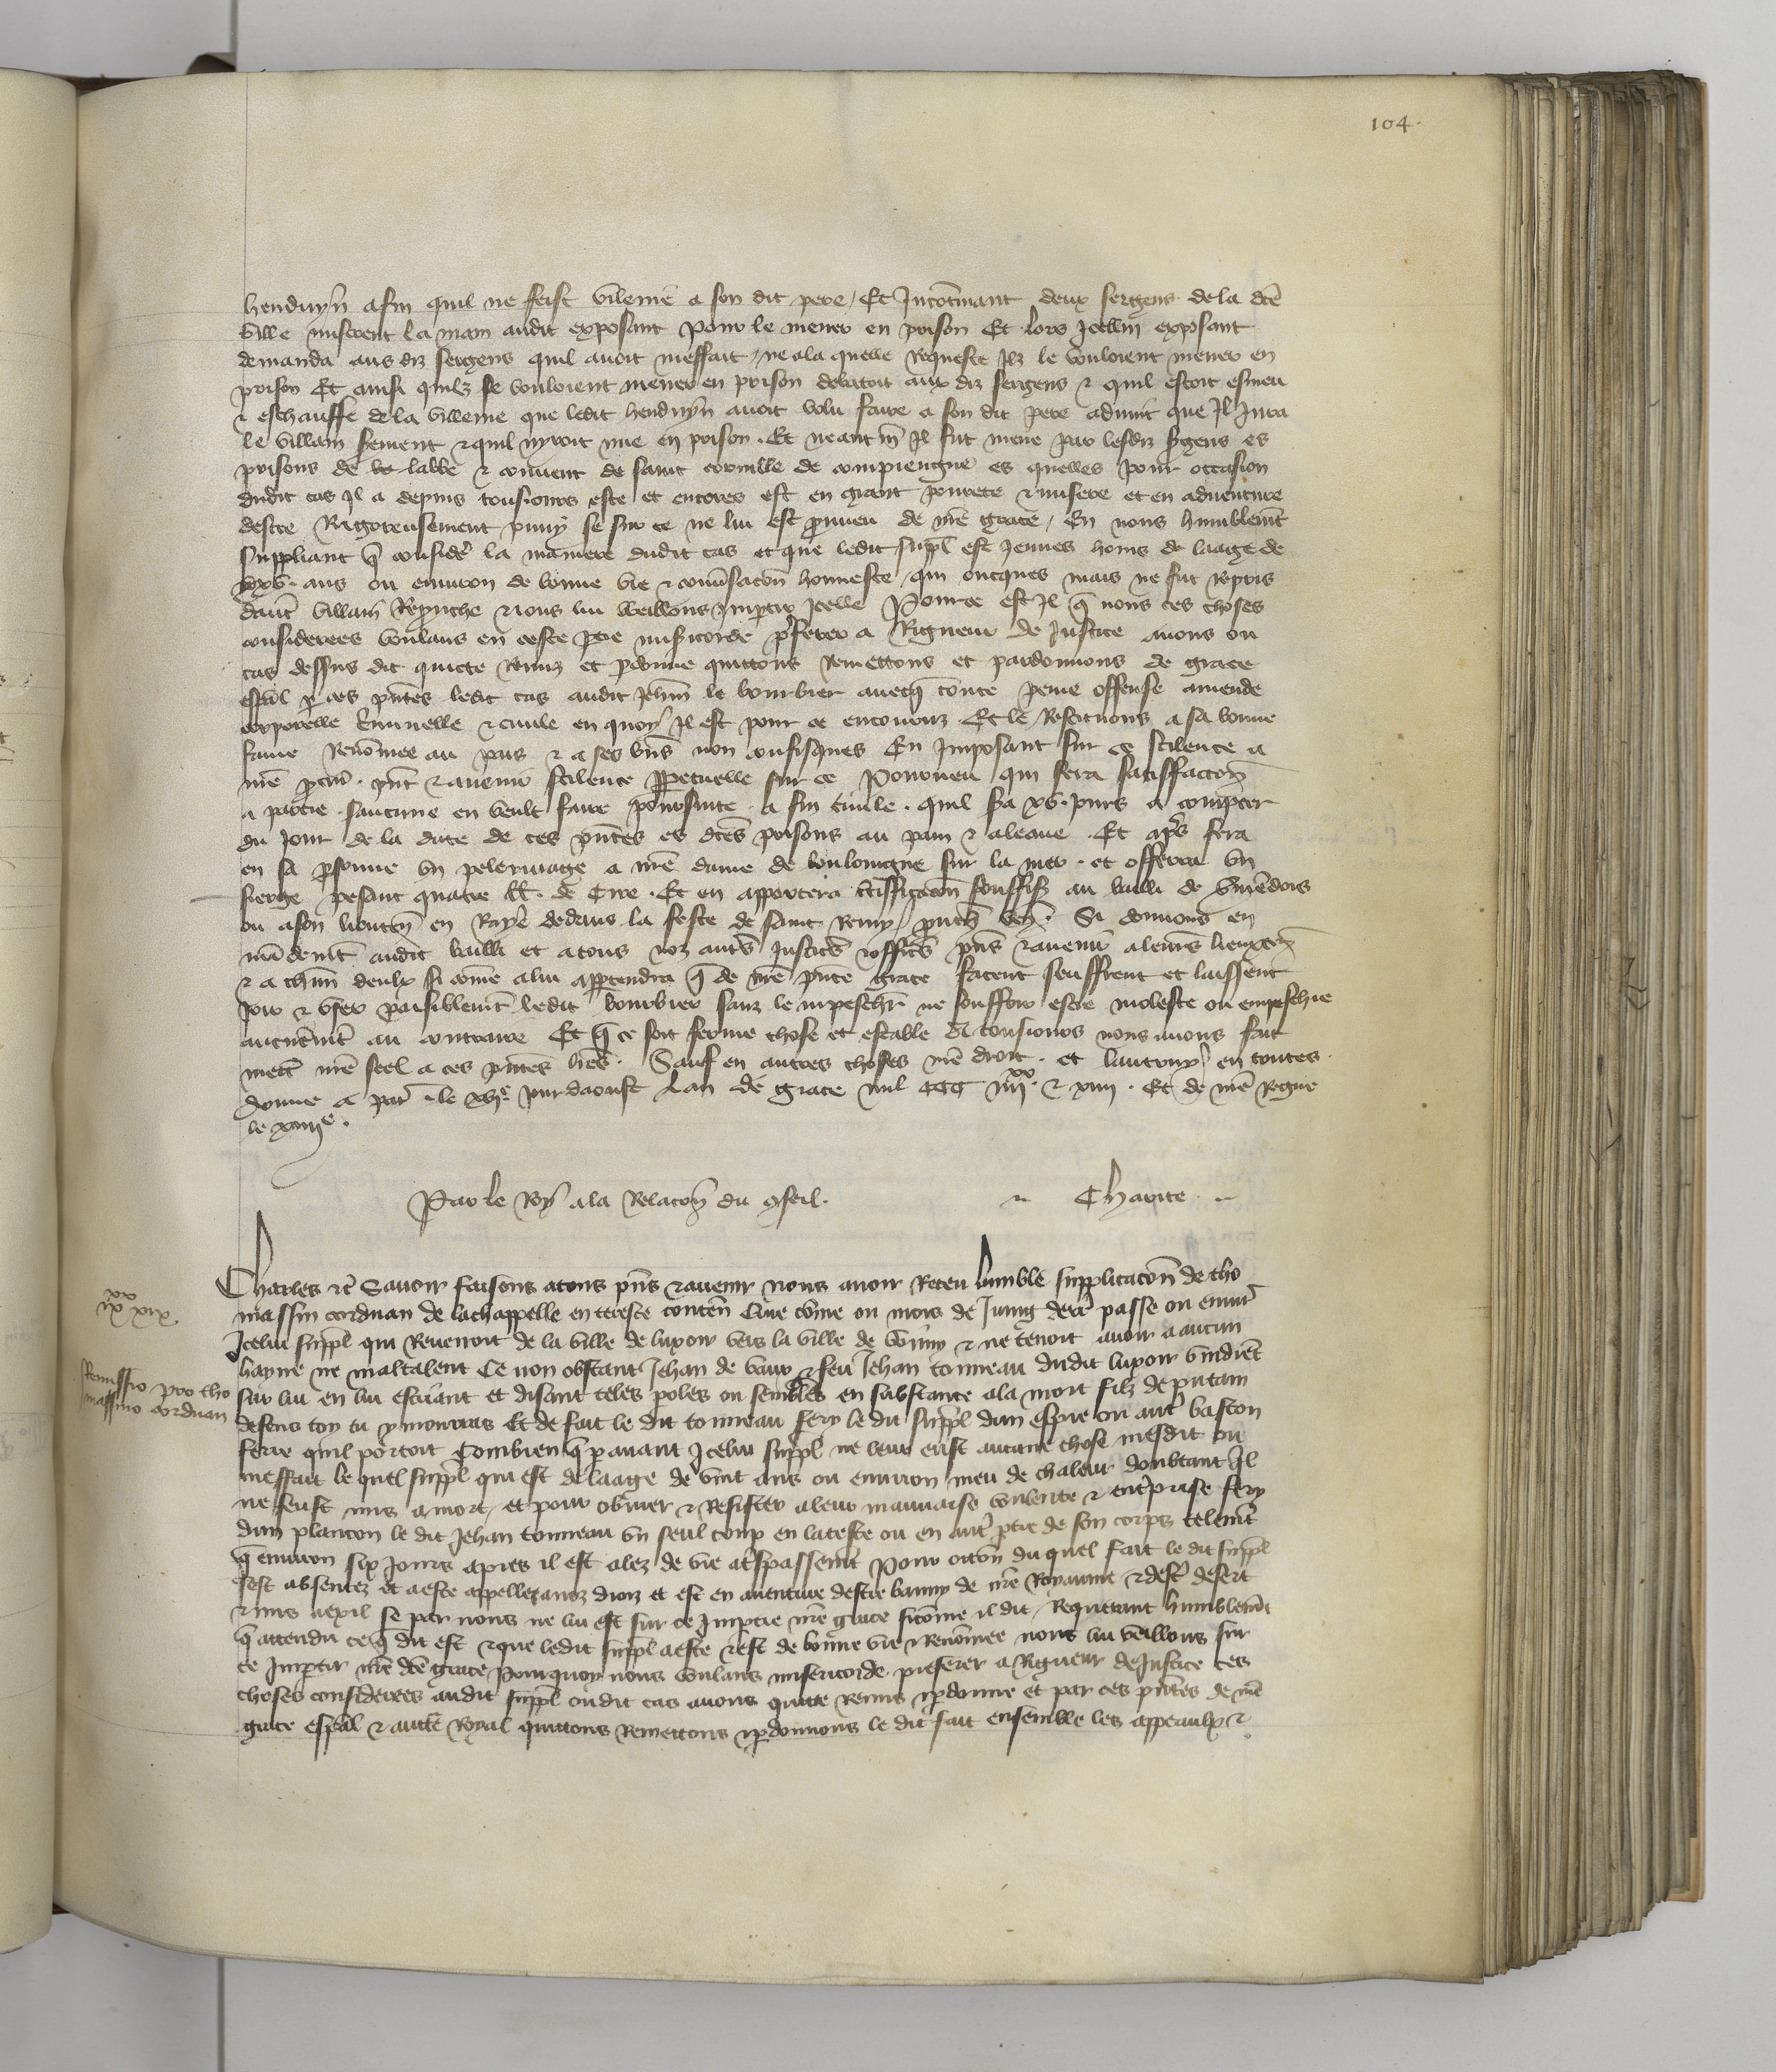 104.
henduyn afin quil ne feist vilenie a son dit pere / Et Incontinant deux sergens de la dce
ville mistrent la main audit exposant pour le mener en prison Et lors Icellui exposant
demanda aus diz sergens quil auoit meffait / ne a la quelle requeste Ilz le vouloient mener en
prison Et ainsi quilz se vouloient mener en prison debatoit aux diz sergens & quil estoit esmeu
& eschauffe de la villenie que ledit henduyn auoit volu faire a son dit pere aduint que Il Jura
le villain serment & quil nyroit mie en prison . Et neantm Il fut mene par lesdiz sgens es
prisons de labbe & couuent de saint cornille de compiengne es quelles pour occasion
dudit cas Il a depuis tousiours este et encores est en grant pourete & misere et en aduenture
destre Rigoreusement puny se sur ce ne lui est pourueu de nre grace / En nous humblemt
suppliant q consider la maniere dudit cas et que ledit suppl est Jeunes homs de laage de
xxv . ans ou enuiron de bonne vie & conusacon honneste / qui oncques mais ne fut repris
daut villain Reprouche & nous lui weillons Impartir Icelle Pource est Il q nous ces choses
considerees voulans en ceste ptie misicorde pferer a Rigueur de Justice auons ou
cas dessus dit quicte remiz et pdonne quittons remettons et pardonnons de grace
espal p ces pntes ledit cas audit Jehan le bourbier auecq toute peine offense amende
corporelle criminelle & ciuile en quoy Il est pour ce encouruz Et le Restituons a sa bonne
fame renommee au pais & a ses biens non confisques En Imposant sur ce scilence a
nre pcur . pnt & auenir scilence ppetuelle sur ce Pourueu qui fera satisffacton
a partie . saucune en veult faire poursuite . a fin ciuile . quil sa xv . Jours a compter
du Jour de la date de ces pntes es dces prisons au pain & a leaue . Et aps fera
en sa psonne vn pelerinage a nre dame de bouloingne sur la mer . et offrera vn
sierge pesant quatre ll . de Cire . Et en apportera certifficacon souffis au bailli de vmendois
ou a son lieuten en Roye dedans la feste de saint Remy / prouch ven . Si donnons en
mandemt audit bailli et a tous noz auts Justiciers & officrs pns & auenir a leurs lieuxten
& a chun deulx si comme a lui apptendra q de nre pnte grace facent seuffrent et laissent
Joir & vser paisiblemt ledit bourbier sanz le empeschr ne souffrir estre moleste ou empeschie
aucunemt au contraire Et q ce soit ferme chose et estable a tousiours nous auons fait
mett nre seel a ces pntes lres . Sauf en autres choses nre droit . et lautruy en toutes .
donne a par . le xvije Jour daoust Lan de grace mil CCC iiijxx . & xiiij . Et de nre Regne
le xiiije .
Par le Roy a la Relacon du gseil .
Charite
xx
ix xix
Remissio pro tho
massino corduan
Charles &c Sauoir faisons a tous pns & auenir nous auoir receu humble supplicacon de tho
massin corduan de la chappelle en tereste conten Que cme ou mois de Juing derr passe ou enuir
Icelui suppl qui reuenoit de la ville de luxoir vers la ville de & ne tenoit auoir a aucun
hayne ne maltalent Ce non obstant Jehan de vaux & feu Jehan tonneau dudit luxoir vindrent
sur lui en lui escriant et disant teles poles ou sembles en substance a la mort filz de putain
defens toy tu y mourras Et de fait le dit tonneau fery le dit suppl dun espie ou aut baston
ferre quil portoit Combien q pauant Icelui suppl ne leur eust aucune chose mesdit ou
meffait le quel suppl qui est de laage de vint ans ou enuiron meu de chaleur doubtant Il
ne feust mis a mort / et pour obuier & resister a leur mauuaise voulente & entreprise fery
dun plancon le dit Jehan tonneau vn seul coup en la teste ou en aut ptie de son corps telemt
q enuiron six Jours apres il est alez de vie a trespassemt Pour occon du quel fait le dit suppl
sest absentez et a este appellez a noz droiz et est en auenture destre banny de nre Royaume & destre desert
& mis a exil se par nous ne lui est sur ce Imptie nre grace sicomme il dit / Requerant humblemt
q attendu ce q dit est & que ledit suppl a este & est de bonne vie & renommee nous lui veillons sur
ce Imptir nre dce grace Pourquoy nous voulans misericorde preferer a Rigueur de Justice ces
choses considerees audit suppl ou dit cas auons quitte remis & pdonne et par ces pntes de nre
grace espal & aucte Royal quittons remettons & pdonnons le dit fait ensemble les appeaulx &